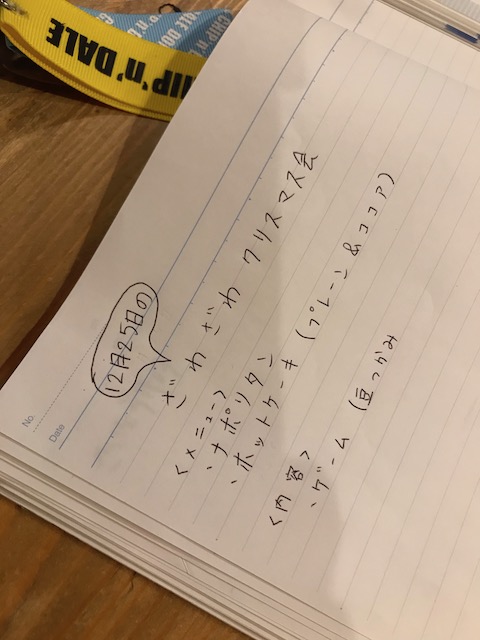 CHIP 'n' DALE
No.
Date
12月25日の
ざわざわ クリスマス会
<メニュー>
、ナポリタン
、ホットケーキ (プレーン & ココア)
<内容>
、ゲーム (豆つかみ